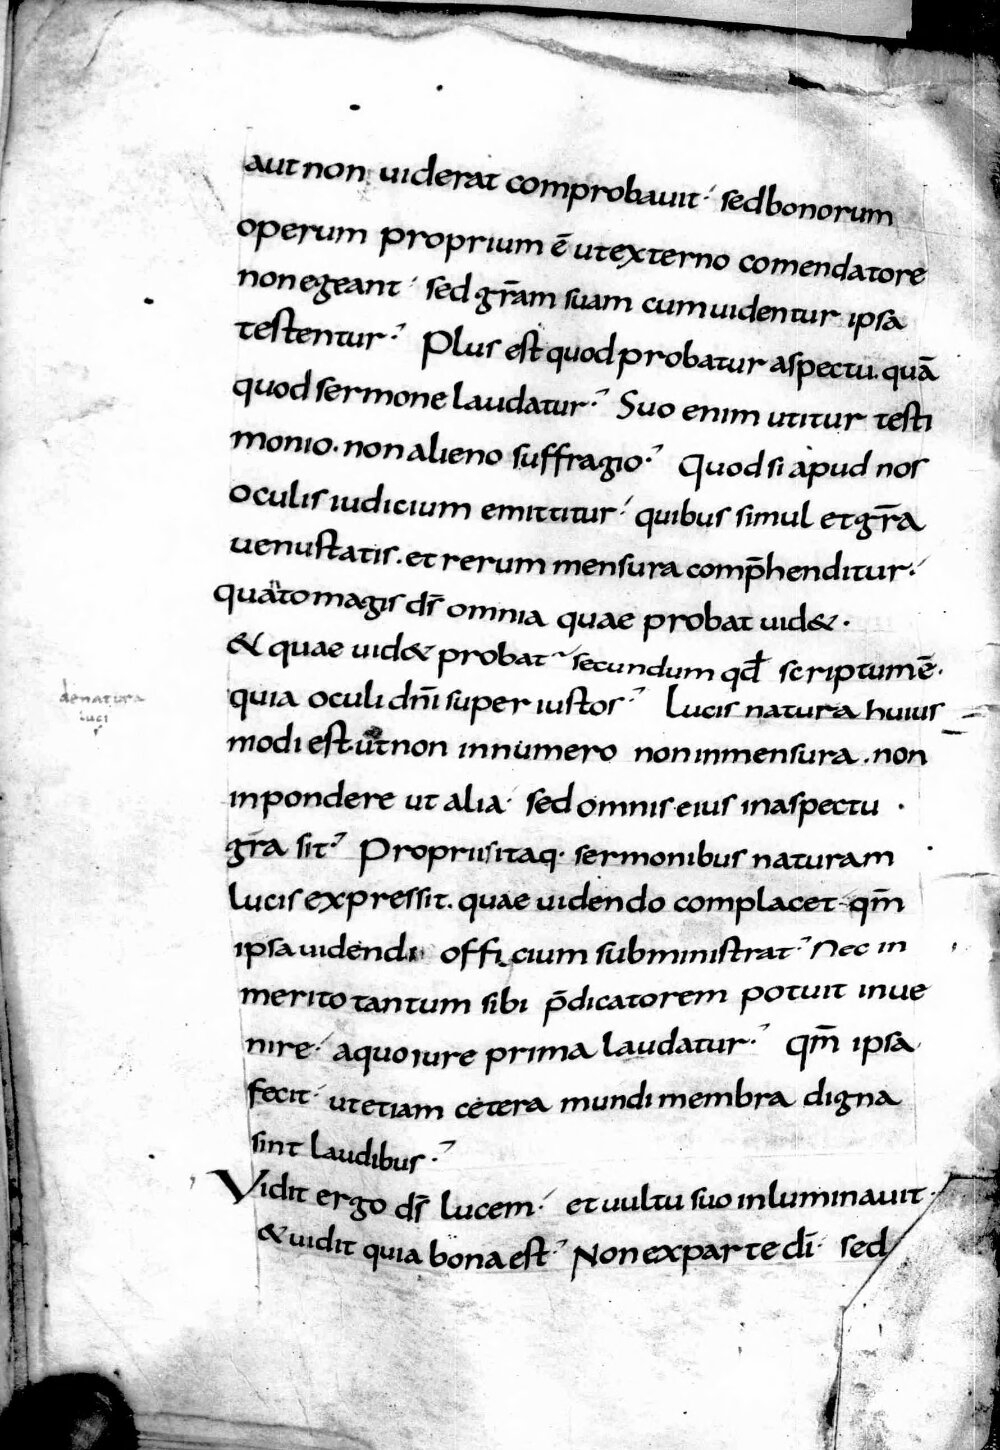 aut non uiderat comprobauit sed bonorum
operum proprium ē ut externo comendatore
non egeant sed gr̄am suam cum uidentur ipsa
testentur. Plus est quod probatur aspectu. quā
quod sermone laudatur. Suo enim utitur testi
monio. non alieno suffragio. Quod si apud nos
oculis iudicium emittitur quibus simul et gr̄a
uenustatis. et rerum mensura comp̄henditur.
quāto magis ds̄ omnia quae probat uid&.
& quae uid& probat secundum qd̄ scriptum ē.
denatura
luci
quia oculi dn̄i super iustos. Lucis natura huius
modi est. ut non in numero non in mensura. non
in pondere ut alia sed omnis eius in aspectu
gr̄a sit. Propriis itaq. sermonibus naturam
lucis expressit. quae uidendo complacet qm̄
ipsa uidendi officium subministrat. Nec in
merito tantum sibi p̄dicatorem potuit inue
nire. a quo iure prima laudatur. qm̄ ipsa
fecit ut etiam cetera mundi membra digna
sint laudibus.
Vidit ergo ds̄ lucem. et uultu suo inluminauit.
& uidit quia bona est. Non ex parte di̅ sed